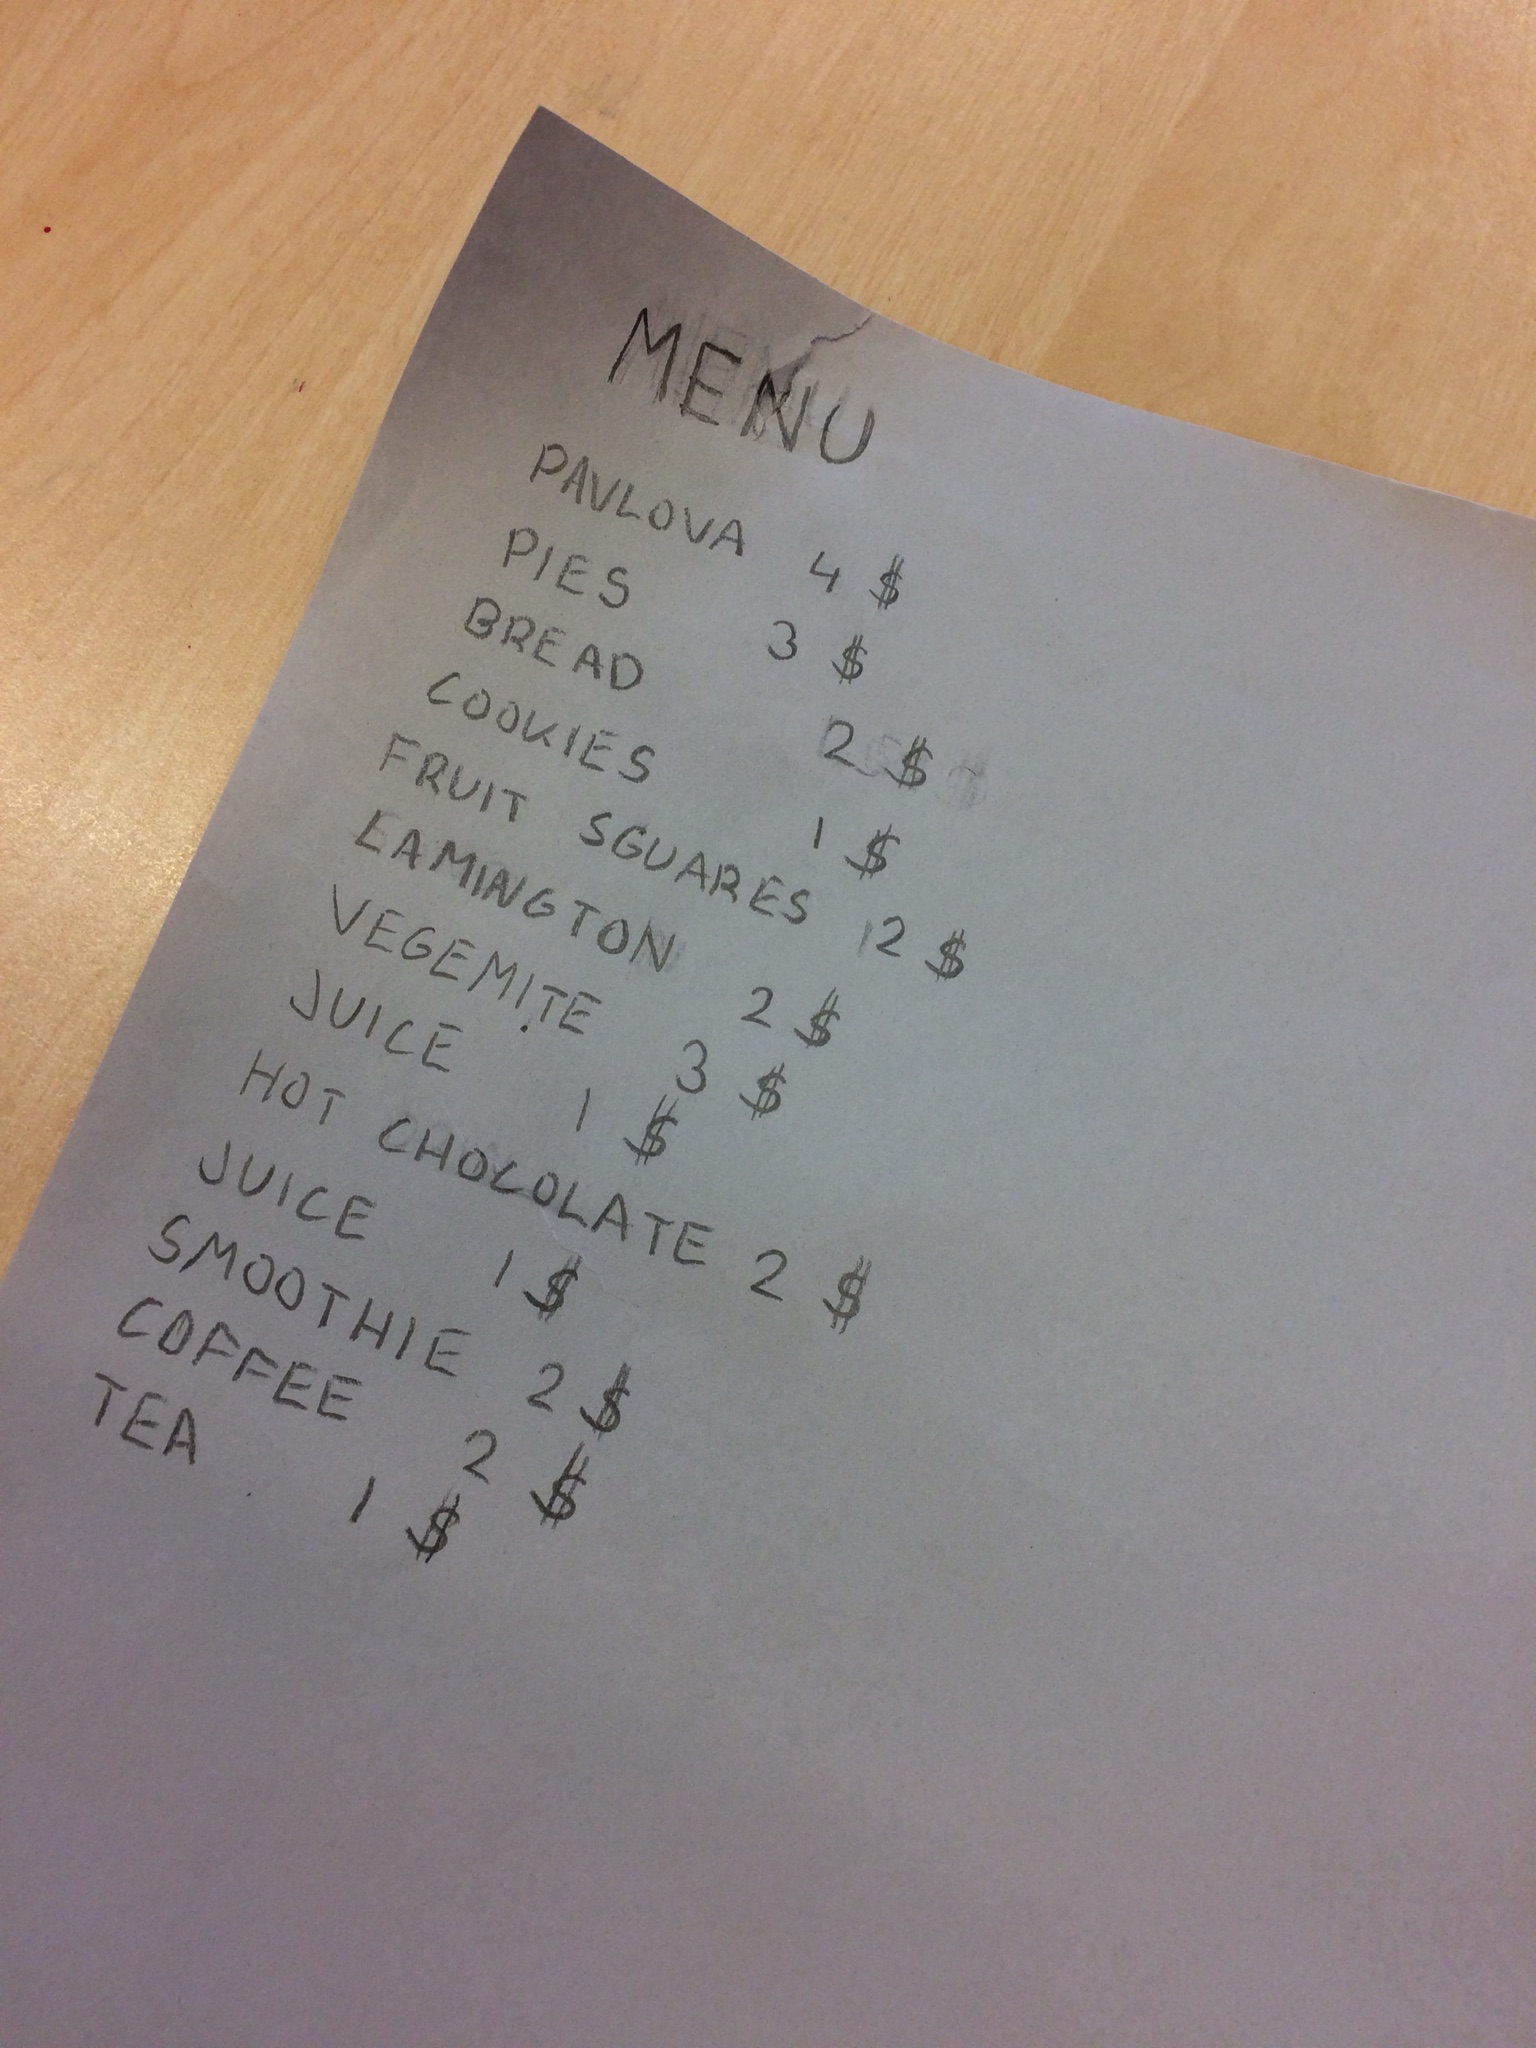 MENU
PAVLOVA 4 $
PIES 3 $
BREAD 2 $
COOKIES 1 $
FRUIT SGUARES 12 $
LAMINGTON 2 $
VEGEMITE 3 $
JUICE 1 $
HOT CHOCOLATE 2 $
JUICE 1 $
SMOOTHIE 2 $
COFFEE 2 $
TEA 1 $